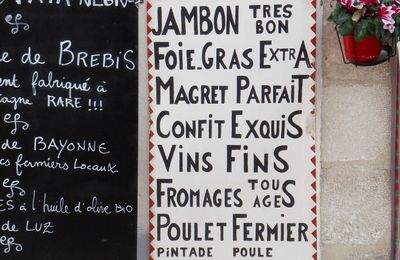 de BREBIS
fabriqué à
RARE !!!
de BAYONNE
fermiers Locaux
à l'huile d'olive BIO
de LUZ
JAMBON TRES BON
FOIE-GRAS EXTRA
MAGRET PARFAIT
CONFIT EXQUIS
VINS FINS
FROMAGES TOUS AGES
POULET FERMIER
PINTADE POULE